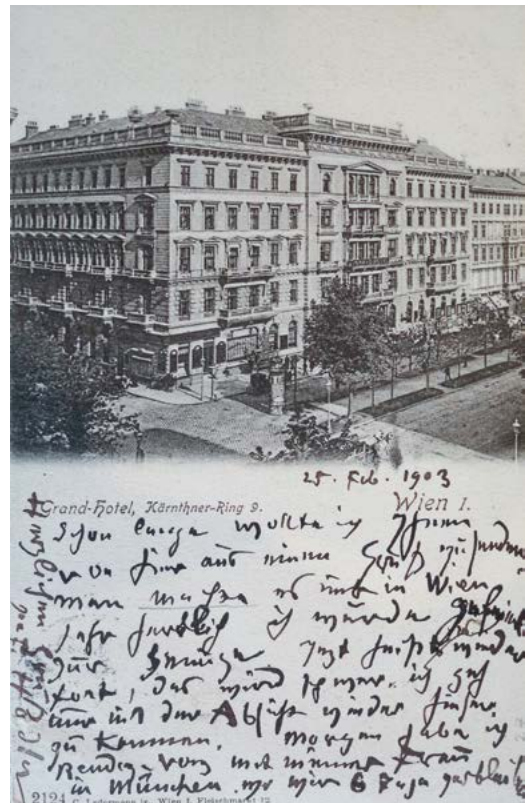 25. Feb. 1903
Grand-Hotel, Kärnthner-Ring 9. Wien I.
Schon lange wollte ich Ihnen
von hier aus einen Gruß zusenden
man es uns in Wien
sehr herrlich ich wurde
zur jetzt heißt es wieder
fort, das wird schwer. ich geh
nur mit der Absicht wieder hierher
zu kommen. Morgen habe ich
Rendez-vous mit meiner Frau
in München, wo wir 6 Tage
2124 C. Ledermann jr. Wien I. Fleischmarkt 12
Herzlichen Gruß